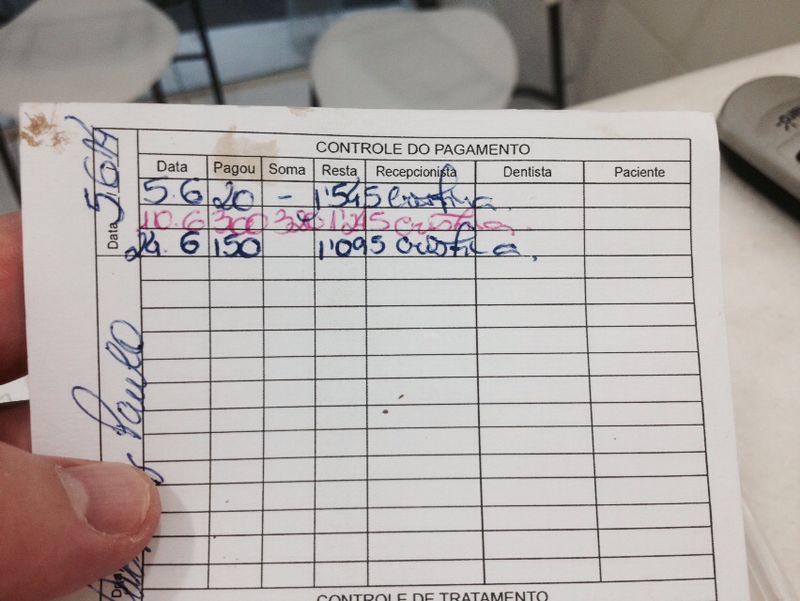 CONTROLE DO PAGAMENTO
Data Pagou Soma Resta Recepcionista Dentista Paciente
5.6 20 - 1'545 Cristina
10.6 300 320 1'245 Cristina
24.6 150 1'095 Cristina
Data 5.6.14
Paulo
CONTROLE DE TRATAMENTO